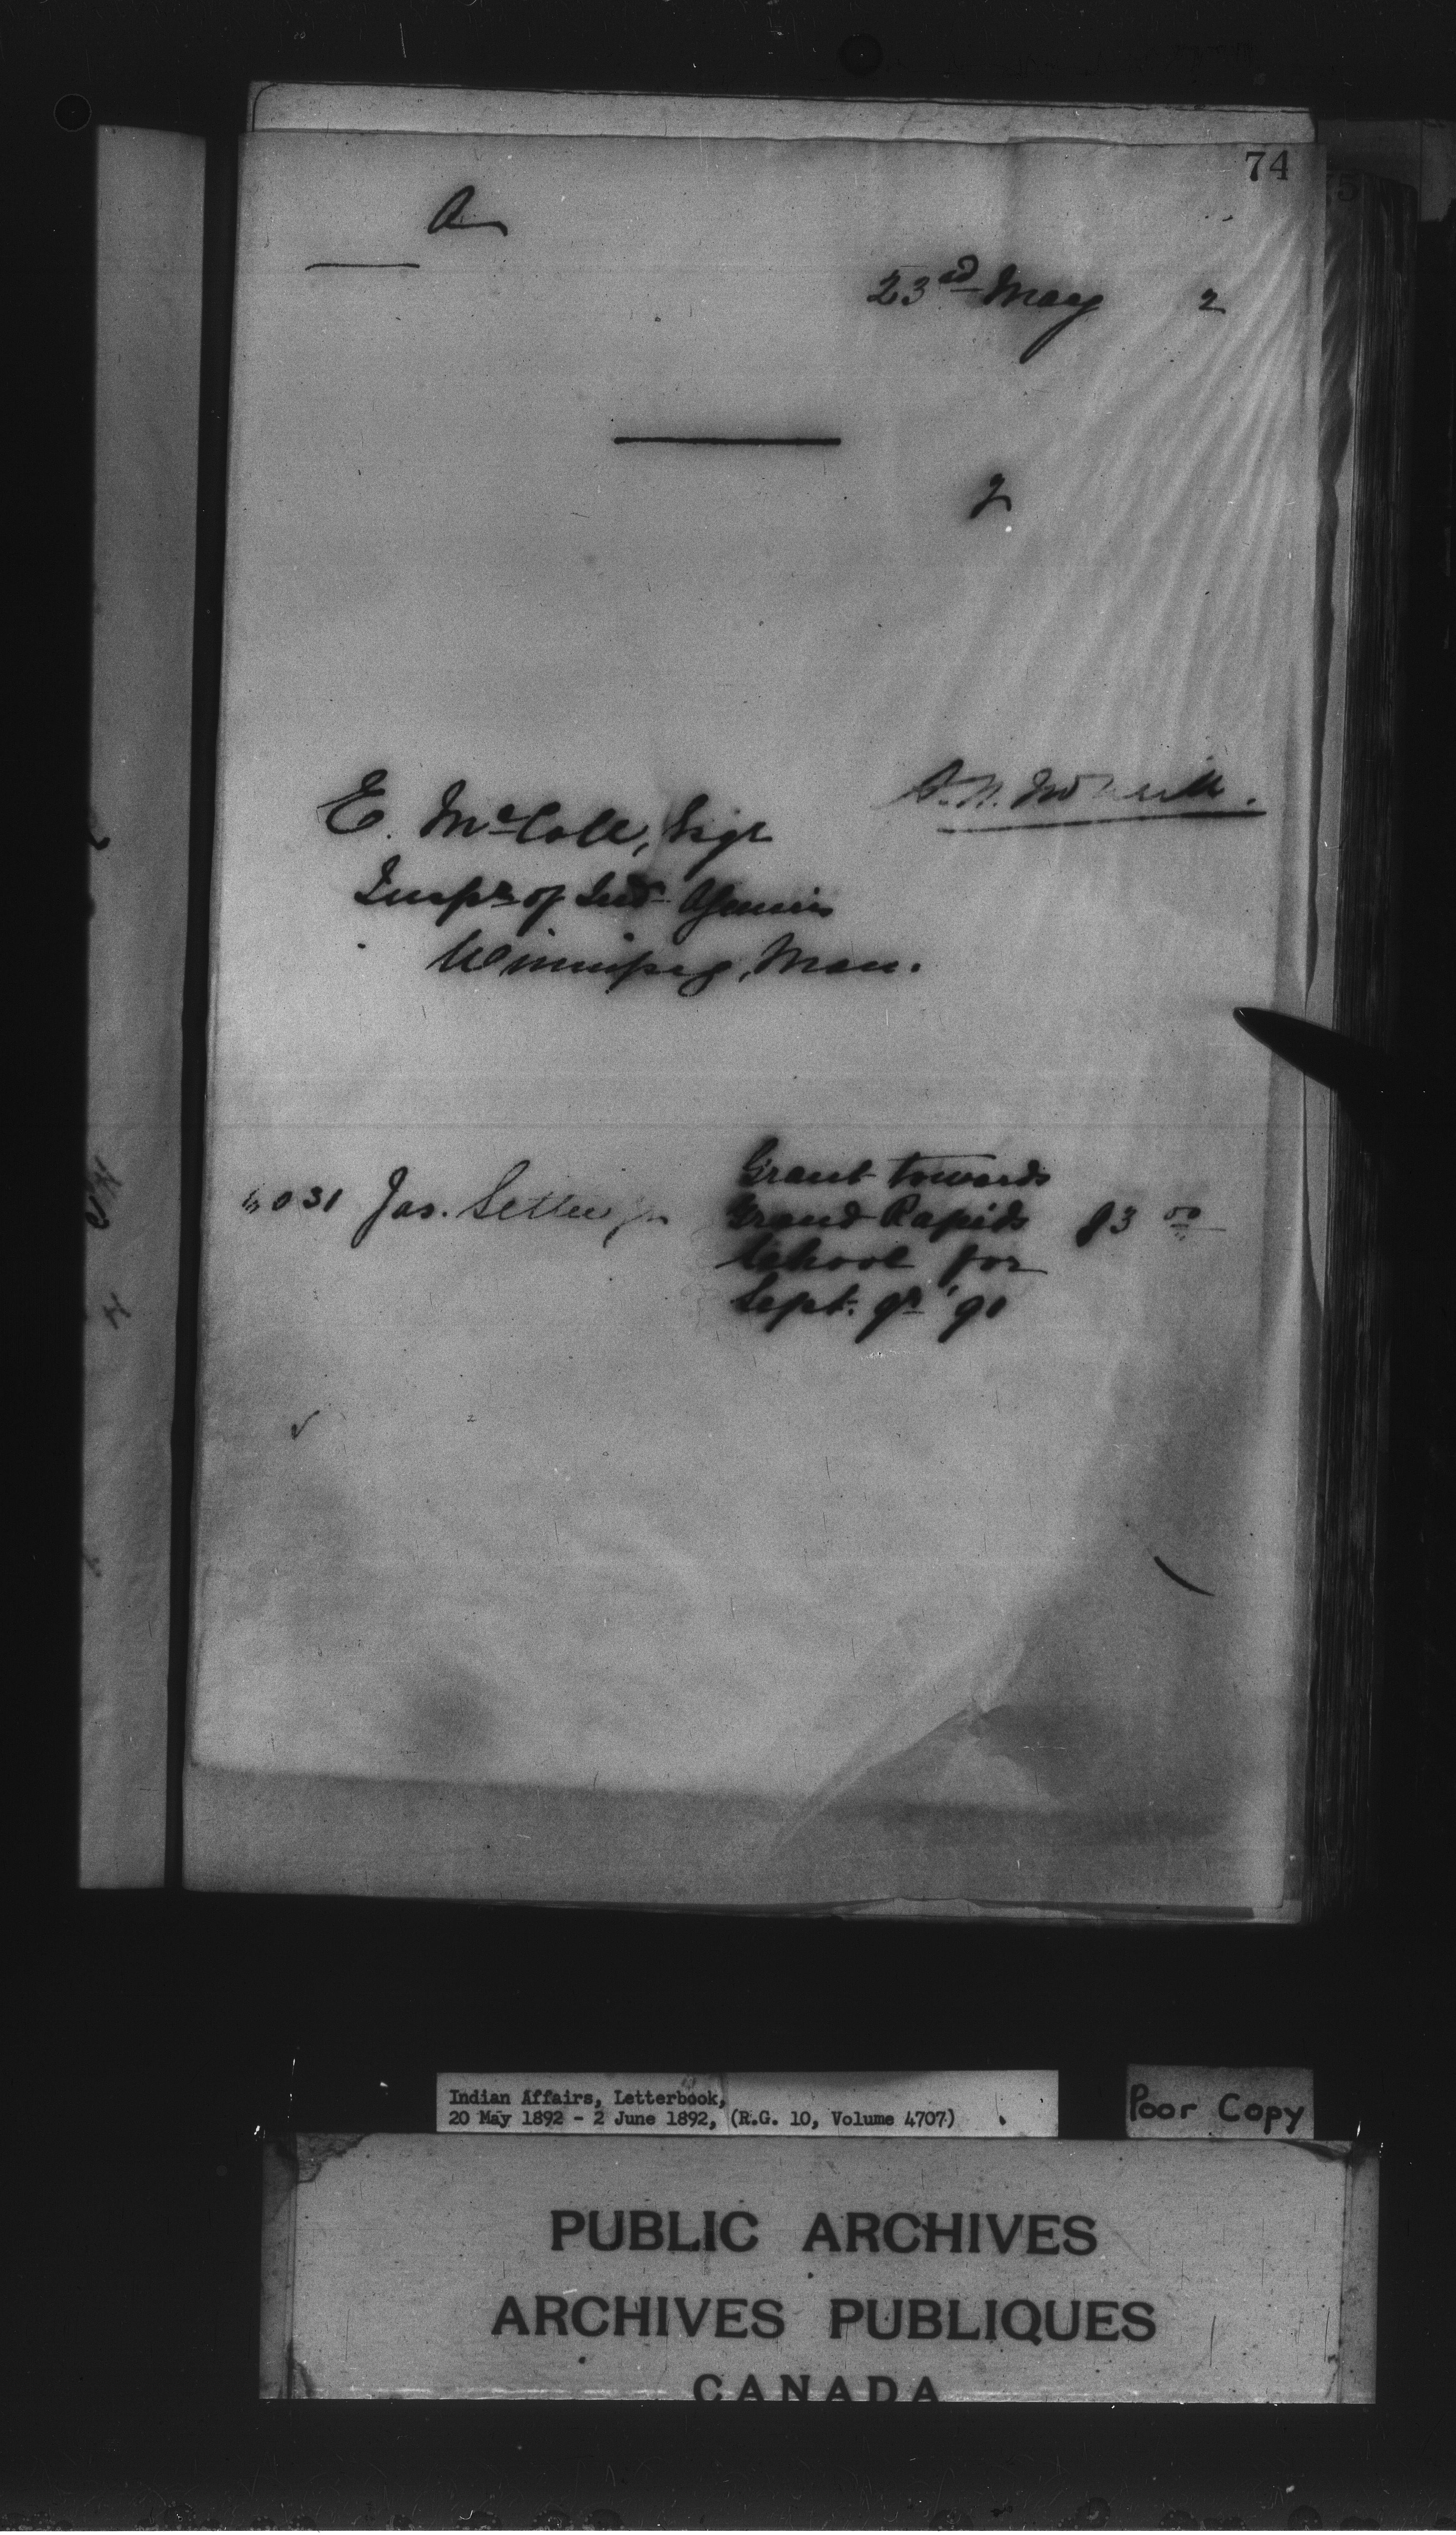 74
23rd May 2
2
E. McColl, Esqr
Inspr of Ind Agencies
Winnipeg, Man.
031 Jas. Settee Jr
Grant towards
Grand Rapids 83 00
School for
Sept. qr '91
Indian Affairs, Letterbook,
20 May 1892 - 2 June 1892, (R.G. 10, Volume 4707)
Poor Copy
PUBLIC ARCHIVES
ARCHIVES PUBLIQUES
CANADA